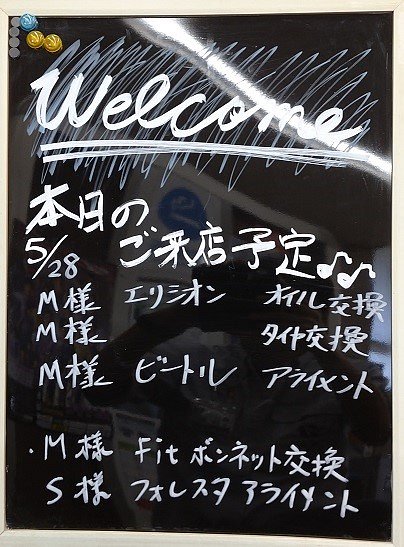 Welcome
本日の
5/28 ご来店予定♪♪
M様 エリシオン オイル交換
M様 タイヤ交換
M様 ビートル アライメント
.M様 Fitボンネット交換
S様 フォレスタ アライメント